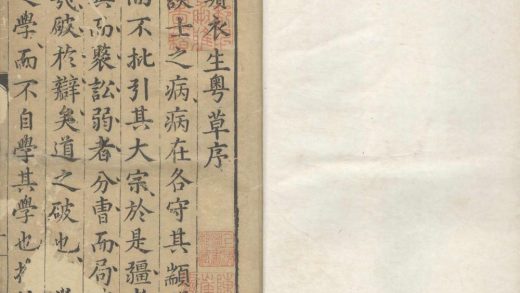 衣生粵草序
談士之病病在各守其顓
而不批引其大宗於是彊
而聚訟弱者分曹而局
破於辯矣道之破也
學而不自學其學也